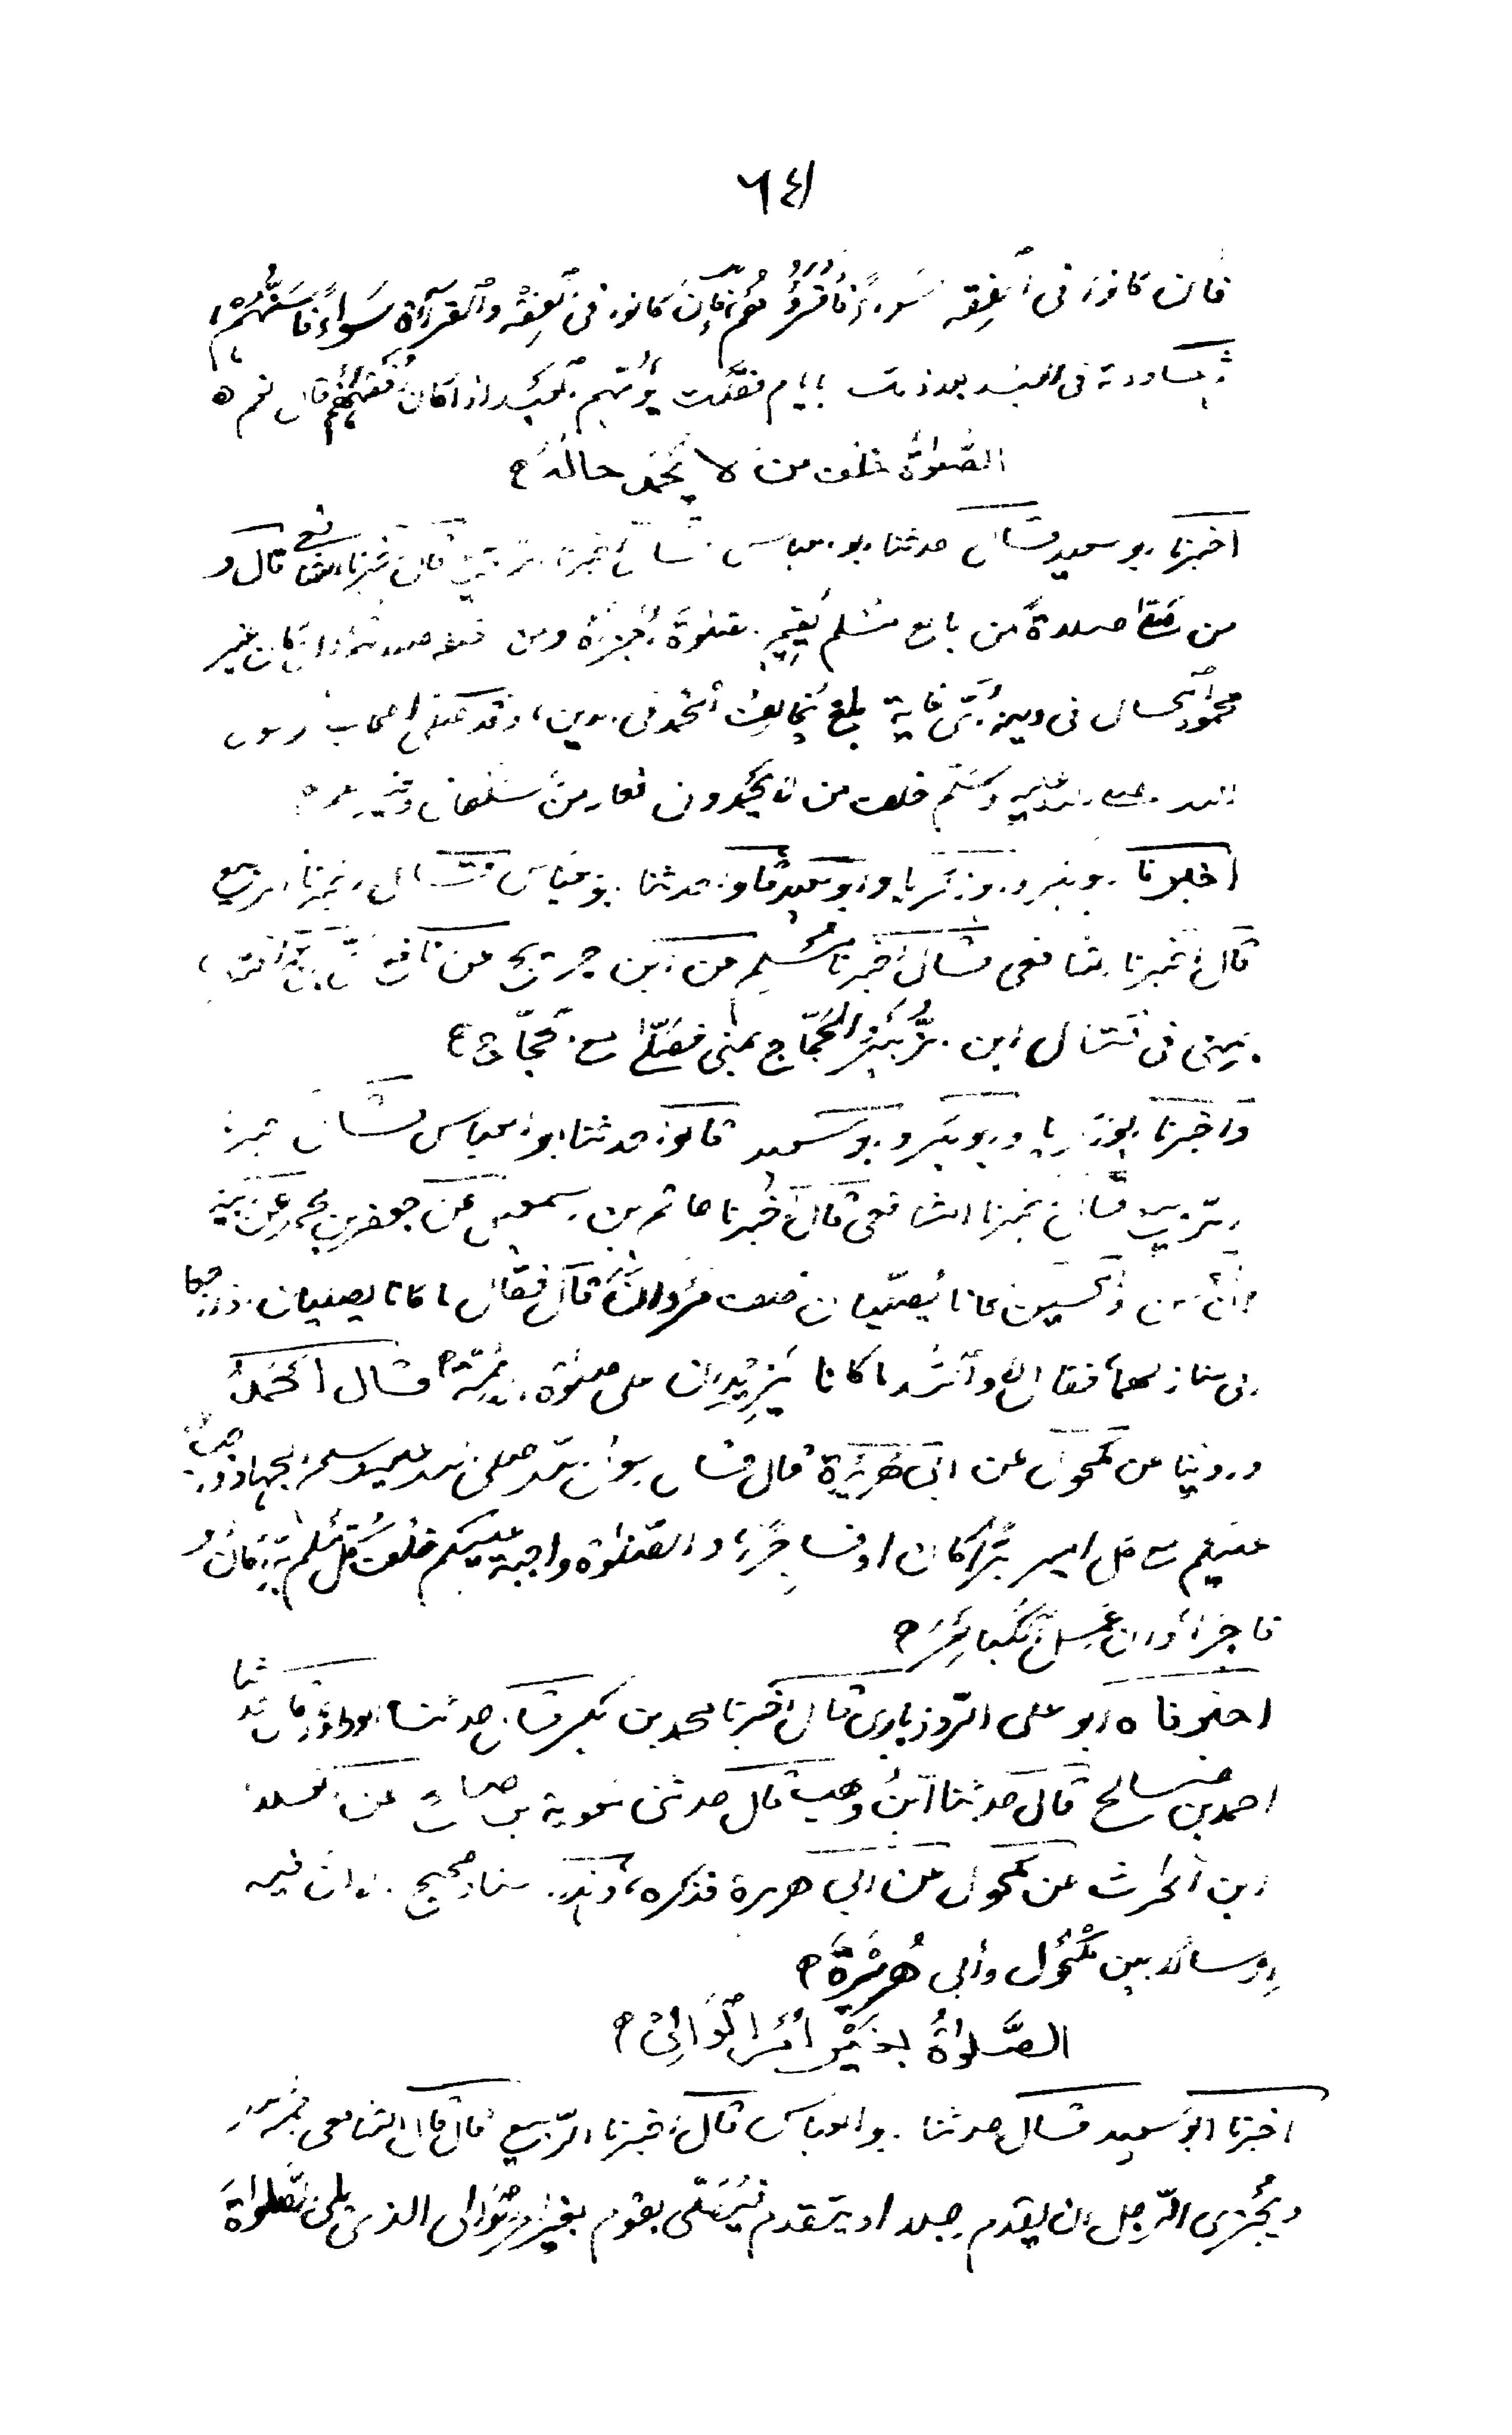 ٦٤١
فان كانوا فى الفقه سواء فأقرؤهم فإن كانوا فى الفقه والقرآءة سواء فأسنهم،
ثم عاودته فى العبد بعد ذلك بايام فقلت يؤمهم العبد اذا كان افقههم قال نعم ه
الصلوٰة خلف من لا يحمد حاله ه
اخبرنا ابو سعيد قال حدثنا ابو العباس قال اخبرنا الربيع قال اخبرنا الشافعى قال و
من صلى صلاة من بالغ مسلم يقيم الصلوة اجزأه ومن خلفه صلاتهم وان كان غير
محمود الحال فى دينه أىّ غاية بلغ يخالف الحمد فى الدين، وقد صلى اصحاب رسول
الله صلى الله عليه وسلم خلف من لا يحمدون فعاله من السلطان وغيره ه
اخبرنا ابو بكر و ابو زكريا و ابو سعيد قالوا حدثنا ابو العباس قال اخبرنا الربيع
قال اخبرنا الشافعى قال اخبرنا مسلم عن ابن جريج عن نافع ان ابن عمر اعتزل
بمنى فى قتال ابن الزبير والحجاج بمنى فصلى مع الحجاج ه
واخبرنا ابو زكريا و ابو بكر و ابو سعيد قالوا حدثنا ابو العباس قال اخبرنا
الربيع قال اخبرنا الشافعى قال اخبرنا حاتم بن اسمعيل عن جعفر بن محمد عن ابيه
ان الحسن والحسين كانا يصليان خلف مروان قال فقال ما كانا يصليان اذا رجعا
الى منازلهما فقال لا والله ما كانا يزيدان على صلوة الائمة ه قال احمد
وروينا عن مكحول عن ابى هريرة قال قال رسول الله صلى الله عليه وسلم الجهاد واجب
عليكم مع كل امير برًّا كان او فاجرًا، والصلوة واجبة عليكم خلف كل مسلم برًّا كان او
فاجرًا وان عمل الكبائر ه
اخبرناه ابو على الروذبارى قال اخبرنا محمد بن بكر قال حدثنا ابو داود قال حدثنا
احمد بن صالح قال حدثنا ابن وهب قال حدثنى معوية بن صالح عن العلاء
ابن الحرث عن مكحول عن ابى هريرة فذكره، وهذا اسناد صحيح الا ان فيه
ارسالا بين مكحول وأبى هريرة ه
الصَّلوٰةُ بغَيْرِ أمْرِ الْوَالِىْ ه
اخبرنا ابو سعيد قال حدثنا ابو العباس قال اخبرنا الربيع قال قال الشافعى
ويجزى الرجل ان يقدم رجلا او يتقدم فيصلى بقوم بغير امر الوالى الذى يلى الصلوٰة